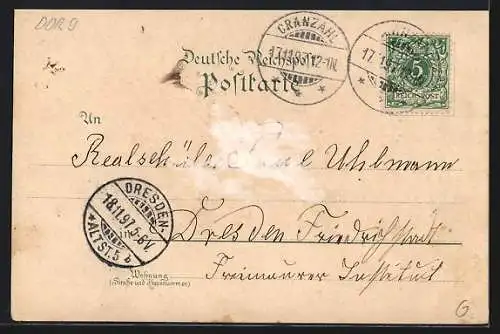 DDR 9
CRANZAHL
17.11.97. 12-1N.
17.11.97
5
REICHSPOST
Deutsche Reichspost
Postkarte
An
Realschüler Uhlmann
DRESDEN-
18.11.97. 5-6V.
*ALTST. 5 b
in
Dresden Friedrichstadt
Wohnung
(Straße und Hausnummer)
Freimaurer Institut
G